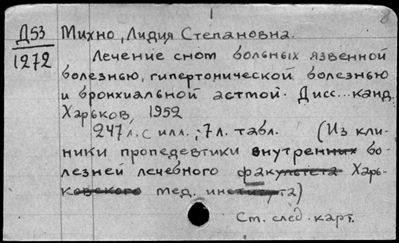 8
Д53 Михно, Лидия Степановна.
1272
Лечение сном больных язвенной
болезнью, гипертонической болезнью
и бронхиальной астмой. Дисс...канд.
Харьков, 1952
247л. с илл.; 7л. табл. (Из кли-
ники пропедевтики внутренних бо-
лезней лечебного факультета Харь-
ковского мед. института)
См. след. карт.